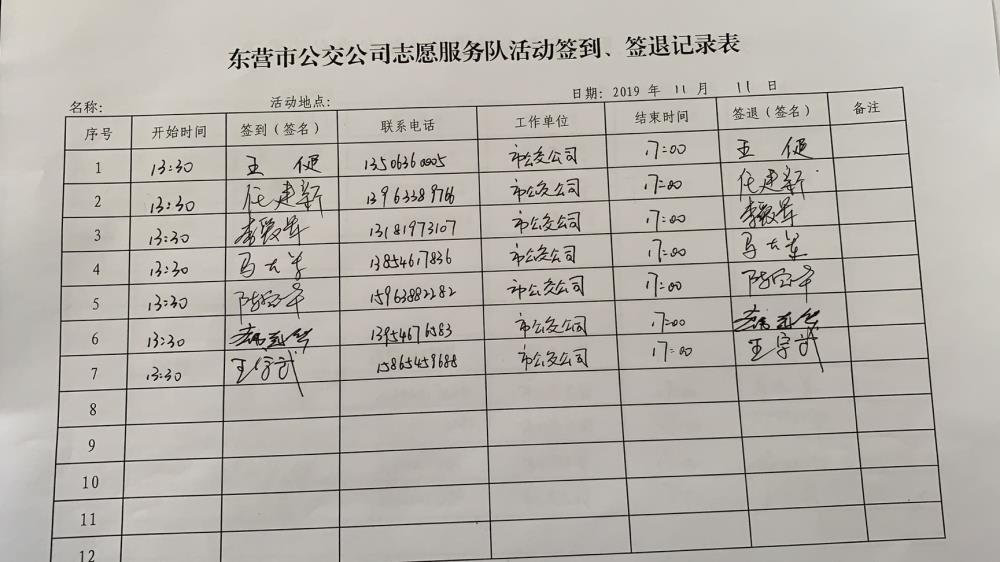 东营市公交公司志愿服务队活动签到、签退记录表
名称: 活动地点: 日期: 2019 年 11 月 11 日
序号 开始时间 签到（签名） 联系电话 工作单位 结束时间 签退（签名） 备注
1 13:30 王 13506360005 市公交公司 17:00 王
2 13:30 任建新 13963389766 市公交公司 17:00 任建新
3 13:30 李 13181973107 市公交公司 17:00 李
4 13:30 马 13854617836 市公交公司 17:00 马
5 13:30 陈 15963882282 市公交公司 17:00 陈
6 13:30 13954676583 市公交公司 17:00
7 13:30 王宇武 15865459688 市公交公司 17:00 王宇武
8
9
10
11
12